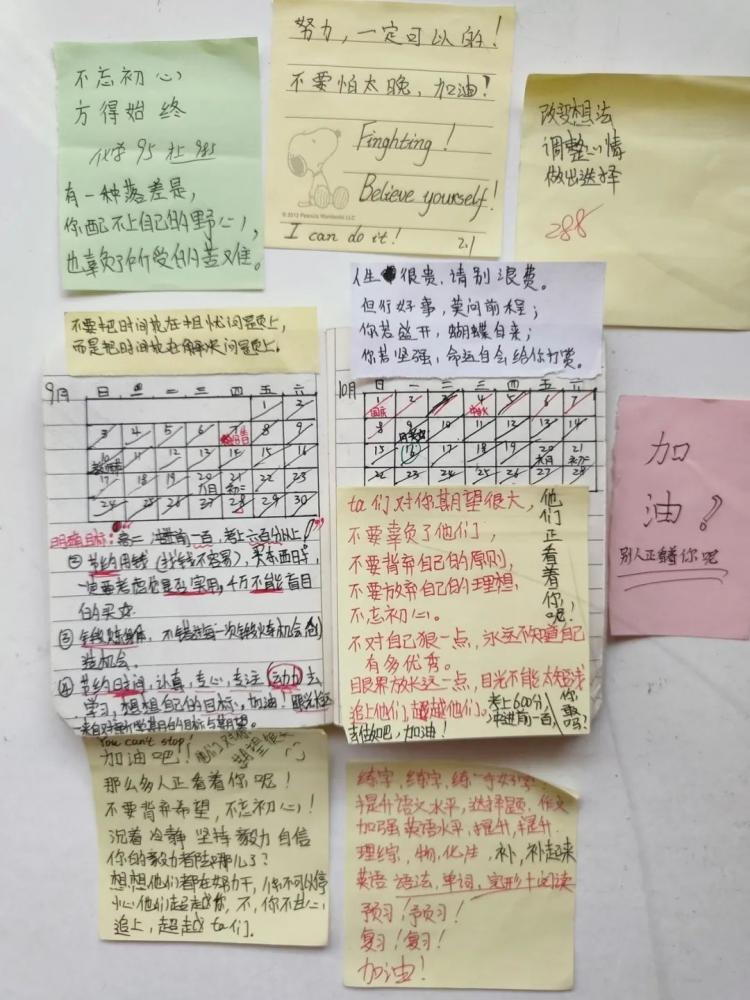 不忘初心
方得始终
化学 95 社 985
有一种落差是,
你配不上自己的野心,
也辜负了所受的苦难。
努力,一定可以的!
不要怕太晚,加油!
Finghting!
Believe yourself!
© 2013 Peanuts Worldwide LLC
I can do it! 2.1
改变想法
调整心情
做出选择
288
不要把时间放在担忧问题上,
而是把时间放在解决问题上。
人生很贵,请别浪费。
但行好事,莫问前程;
你若盛开,蝴蝶自来;
你若坚强,命运自会给你打赏。
9月 日 一 二 三 四 五 六
1 2
3 4 5 6 7 8 9
10 11 12 13 14 15 16
17 18 19 20 21 22 23
24 25 26 27 28 29 30
10月 日 一 二 三 四 五 六
1 2 3 4 5 6 7
8 9 10 11 12 13 14
15 16 17 18 19 20 21
22 23 24 25 26 27 28
明确目标:高二 冲进前一百,考上六百分以上!
② 节约用钱(挣钱不容易),买东西时,
一定要考虑是否实用,千万不能盲目
的买.
③ 锻炼身体,不错过每一次锻炼机会,创
造机会.
④ 节约时间,认真,专心,专注,(动力)去
学习,想想自己的目标,加油!
来自对新学期的目标与期望。
ta们对你期望很大,
不要辜负了他们,
不要背弃自己的原则,
不要放弃自己的理想,
不忘初心。
不对自己狠一点,永远不知道自己
有多优秀。
眼界放长远一点,目光不能太短浅
追上他们,超越他们。
去做吧,加油!
他们正看着你呢!
考上600分,
冲进前一百,
你敢吗?
加
油!
别人正看着你呢
You can't stop!
他们对你期望很大
加油吧!
那么多人正看着你呢!
不要背弃希望,不忘初心!
沉着 冷静 坚持 毅力 自信
你的毅力都在哪儿了?
想想他们都在努力干,你不可以停
小心他们超越你,不,你不甘心,
追上,超越ta们.
练字,练字,练一手好字!
提升语文水平,选择题,作文
加强英语水平,提升,提升.
理综,物,化,生,补,补起来
英语 语法,单词,完形+阅读
预习!预习!
复习!复习!
加油!